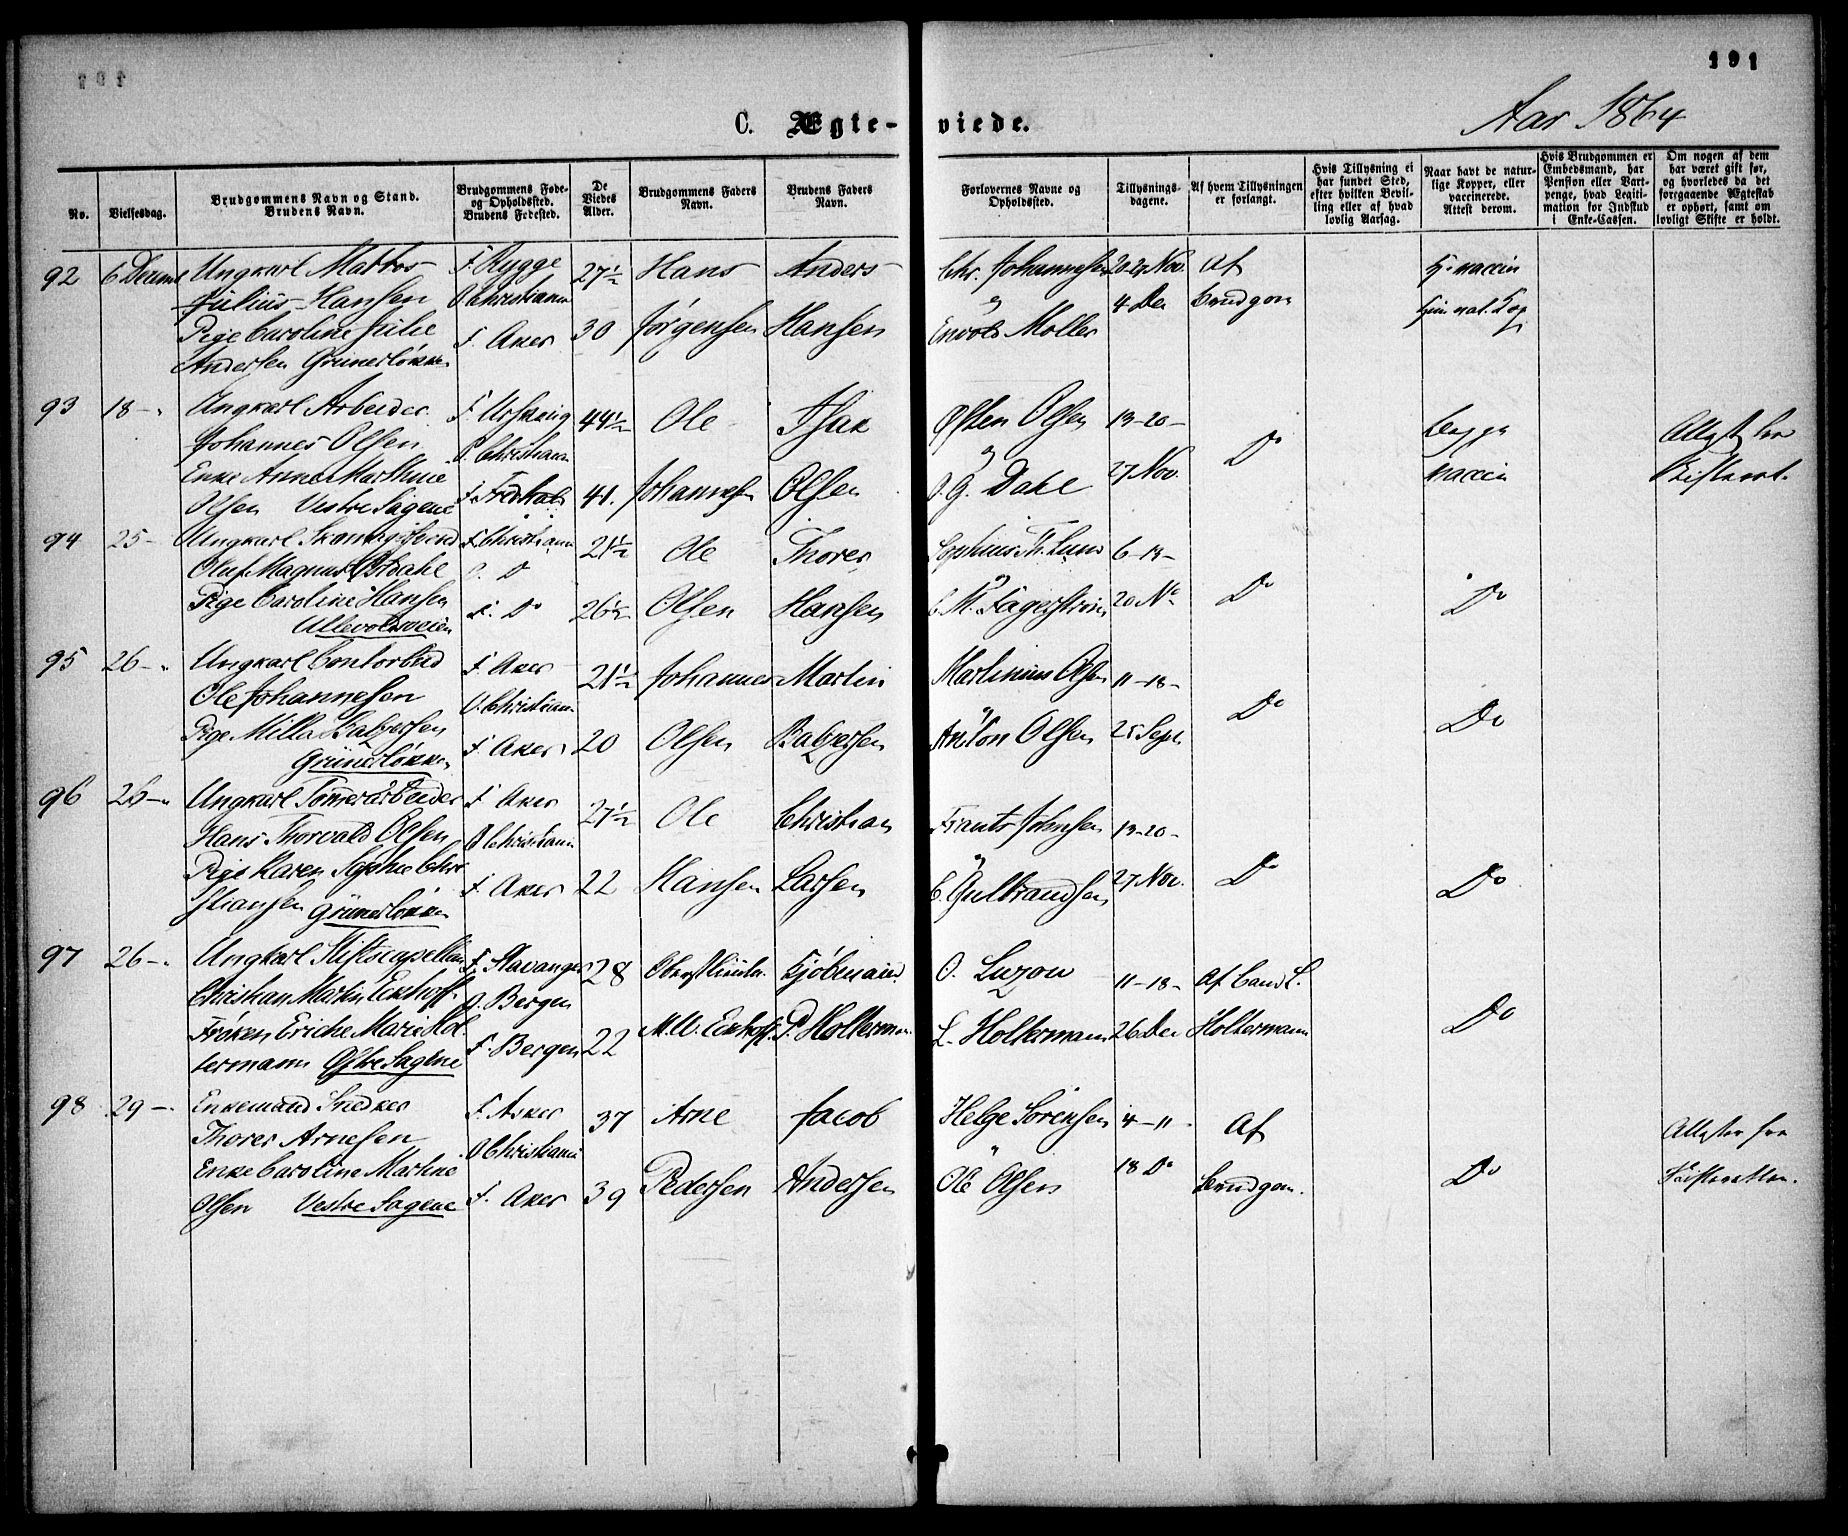 191
C. Ægte-
viede.
Aar 1864
No.
Vielsesdag.
Brudgommens Navn og Stand.
Brudens Navn.
Brudgommens Føde-
og Opholdssted.
Brudens Fødested.
De
Viedes
Alder.
Brudgommens Faders
Navn.
Brudens Faders
Navn.
Forlovernes Navne og
Opholdssted.
Tillysnings-
dagene.
Af hvem Tillysningen
er forlangt.
Hvis Tillysning ei
har fundet Sted,
efter hvilken Bevil-
ling eller af hvad
lovlig Aarsag.
Naar havt de natur-
lige Kopper, eller
vaccinerede.
Attest derom.
Hvis Brudgommen er
Embedsmand, har
Pension eller Vart-
penge, hvad Legiti-
mation for Indskud
i Enke-Cassen.
Om nogen af dem
har været gift før,
og hvorledes da det
foregaaende Ægteskab
er ophørt, samt om
lovligt Skifte er holdt.
92 6 Decme Ungkarl F. Rygge 27½ Hans Anders Chr. Johannesen 20-27 Nov. Af H. vaccin
Julius Hansen O. Christiania og 4 Dec Brudgom
Pige Caroline Julie F. Aker 30 Jørgensen Hansen Møller
Andersen Grünerløkken
93 18 - Ungkarl Arbeider F. Urskoug 44½ Ole Isak Østen Olsen 13-20- begge
Johannes Olsen O. Christiania og Do
Enke Anne Marthine 41. Johannesen Olsen O. G. Dahl 27 Nov. vaccin
Olsen Vestre Sagene
94 25 - Ungkarl F. Christiania 21½ Ole Thores 6-13-
Oluf Magnus O. Do
Pige Caroline Hansen F. Do 26½ Olsen Hansen Fagerstrøm 20 No Do Do
Ullevoldsveien
95 26 - Ungkarl Contorbud F. Aker 21½ Johannes Martin Martinius Olsen 11-18-
Ole Johannesen O. Christiania Do Do
Pige Milla Balzersen F. Aker 20 Olsen Balzersen Anton Olsen 25 Sept.
Grünerløkken
96 26 - Ungkarl Tømmerarbeider F. Aker 27½ Ole Christian Frants Johnsen 13-20-
Hans Thorvald Olsen O. Christiania
Pige Karen Sophie Chri F. Aker 22 Hansen Larsen C. Gulbrandsen 27 Nov. Do Do
stiansen Grünerløkken
97 26 - Ungkarl Stiftscapellan F. Stavanger 28 Oberstlieutn. Kjøbmand O. Luzow 11-18- Af Cand L.
Christian Martin Eckhoff O. Bergen Do
Frøken Eriche Marie Hol F. Bergen 22 M. W. Eckhoff P. Holterman L. Holtermann 26 Dec Holtermann
termann Østre Sagene
98 29 - Enkemand Snedker F. Asker 37 Arne Jacob Helge Sørensen 4-11 Af Attester fra
Thores Arnesen O. Christiania
Enke Caroline Martine F. Aker 39 Pedersen Andersen Ole Olsen 18 Do Brudgom. Do Skifteretten.
Olsen Vestre Sagene